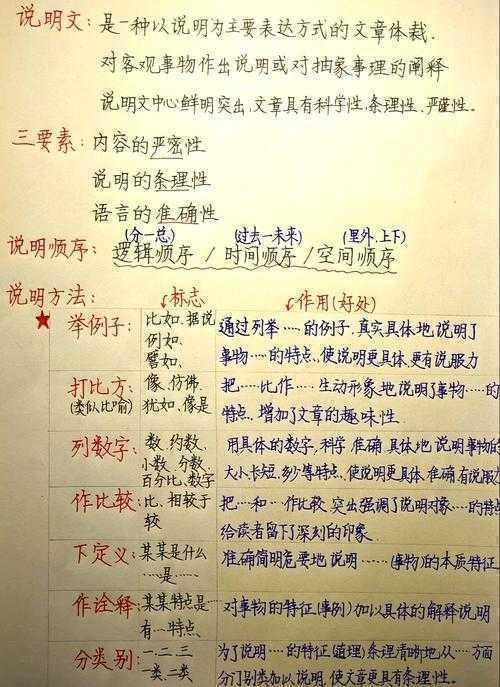 说明文：是一种以说明为主要表达方式的文章体裁.
对客观事物作出说明或对抽象事理的阐释
说明文中心鲜明突出、文章具有科学性、条理性、严谨性。
三要素：内容的严密性
说明的条理性
语言的准确性
(分—总) (过去—未来) (里外、上下)
说明顺序：逻辑顺序 / 时间顺序 / 空间顺序
说明方法： 标志 作用(好处)
★ 举例子： 比如、据说 例如、 譬如、
通过列举……的例子，真实具体地说明了
事物……的特点、使说明更具体、更有说服力
打比方： (类似比喻) 像、仿佛、 犹如、像是
把……比作……生动形象地说明了事物……的
特点、增加了文章的趣味性.
列数字： 数、约数、 小数、分数、 百分比、数字
用具体的数字，科学 准确 具体地 说明事物的
大小长短、多少等特点、使说明更具体、准确、有说服
作比较： 比、相较于 较
把…和…作比较，突出强调了说明对象……的特点
给读者留下了深刻的印象
下定义： 某某是什么 ……是……
准确简明扼要地说明……(事物)的本质特征
作诠释： 某某特点是… 有…特点、
对事物的特征(事例)加以具体的解释说明
分类别： 一、二、三 一类、二类
为了说明……的特征(道理)条理清晰地从……方面
分门别类加以说明、使文章更具有条理性.